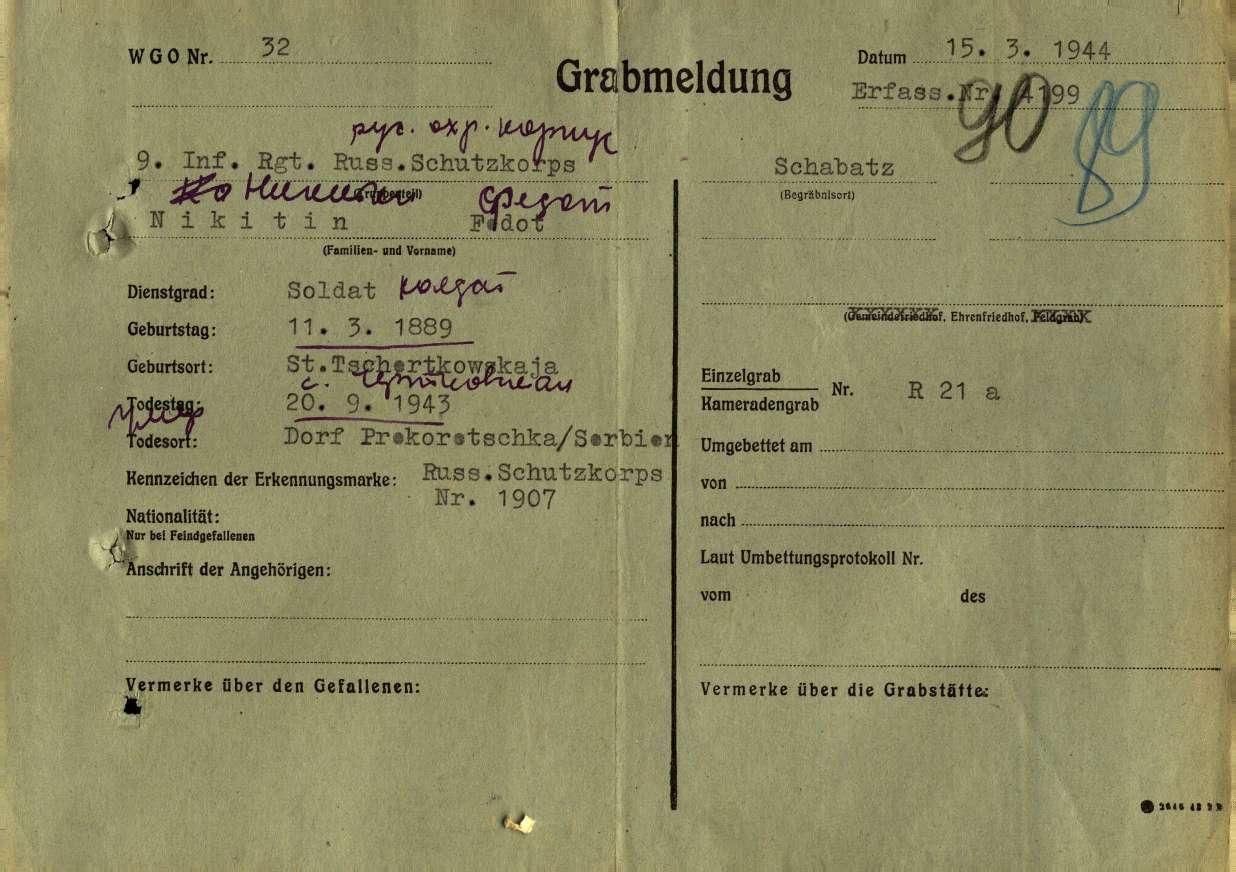 WGO Nr. 32
Grabmeldung
Datum 15. 3. 1944
Erfass.Nr. 4199
90 89
рус. охр. корпус
9. Inf. Rgt. Russ.Schutzkorps
(Truppenteil)
Никитин Федот
Nikitin Fedot
(Familien- und Vorname)
Dienstgrad: Soldat солдат
Geburtstag: 11. 3. 1889
Geburtsort: St.Tschertkowskaja
с. Чертковская
Todestag: 20. 9. 1943
умер
Todesort: Dorf Prekoretschka/Serbien
Kennzeichen der Erkennungsmarke: Russ.Schutzkorps
Nr. 1907
Nationalität:
Nur bei Feindgefallenen
Anschrift der Angehörigen:
Vermerke über den Gefallenen:
Schabatz
(Begräbnisort)
(Gemeindefriedhof, Ehrenfriedhof, Feldgrab)
Einzelgrab
Kameradengrab Nr. R 21 a
Umgebettet am
von
nach
Laut Umbettungsprotokoll Nr.
vom des
Vermerke über die Grabstätte: